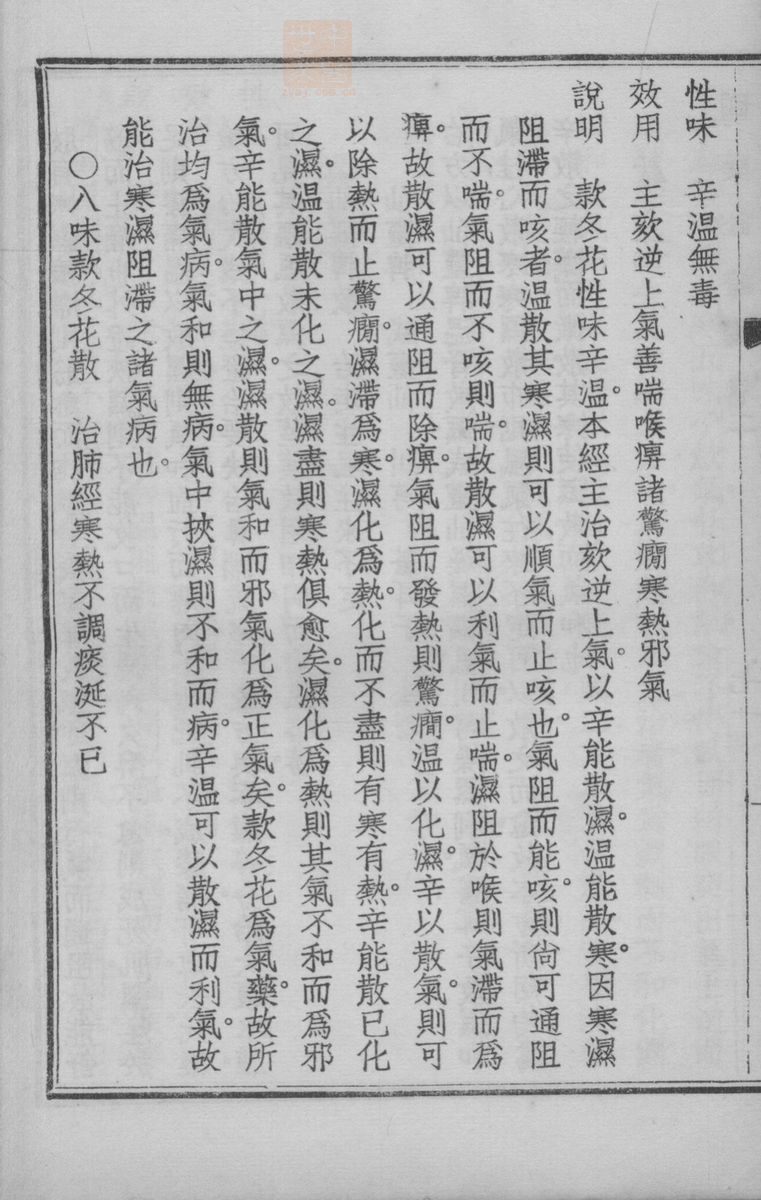 性味　辛温無毒
效用　主欬逆上氣善喘喉痹諸驚癇寒熱邪氣
說明　款冬花性味辛温。本經主治欬逆上氣。以辛能散濕。温能散寒。因寒濕
阻滯而咳者。温散其寒濕則可以順氣而止咳也。氣阻而能咳。則尙可通阻
而不喘。氣阻而不咳則喘。故散濕可以利氣而止喘。濕阻於喉則氣滯而爲
痹。故散濕可以通阻而除痹。氣阻而發熱則驚癇。温以化濕。辛以散氣。則可
以除熱而止驚癇。濕滯爲寒。濕化爲熱。化而不盡則有寒有熱。辛能散已化
之濕。温能散未化之濕。濕盡則寒熱俱愈矣。濕化爲熱則其氣不和而爲邪
氣。辛能散氣中之濕。濕散則氣和而邪氣化爲正氣矣。款冬花爲氣藥。故所
治均爲氣病。氣和則無病。氣中挾濕則不和而病。辛温可以散濕而利氣。故
能治寒濕阻滯之諸氣病也。
○八味款冬花散　治肺經寒熱不調痰涎不已